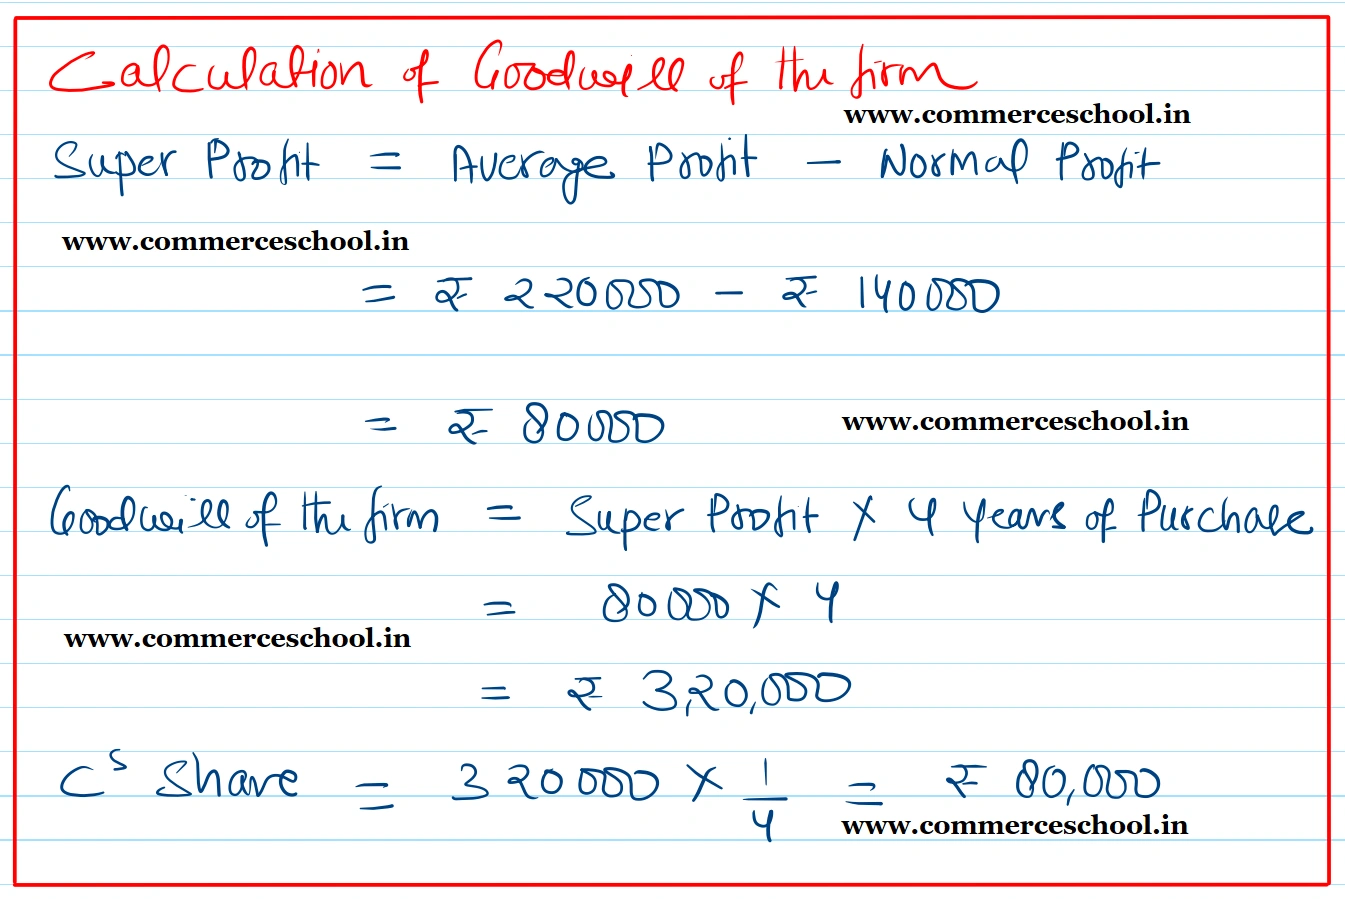 Calculation of Goodwill of the firm
www.commerceschool.in
Super Profit = Average Profit - Normal Profit
www.commerceschool.in
= ₹ 220000 - ₹ 140000
= ₹ 80000
www.commerceschool.in
Goodwill of the firm = Super Profit × 4 years of Purchase
= 80000 × 4
www.commerceschool.in
= ₹ 3,20,000
C^s Share = 320000 × 1/4 = ₹ 80,000
www.commerceschool.in